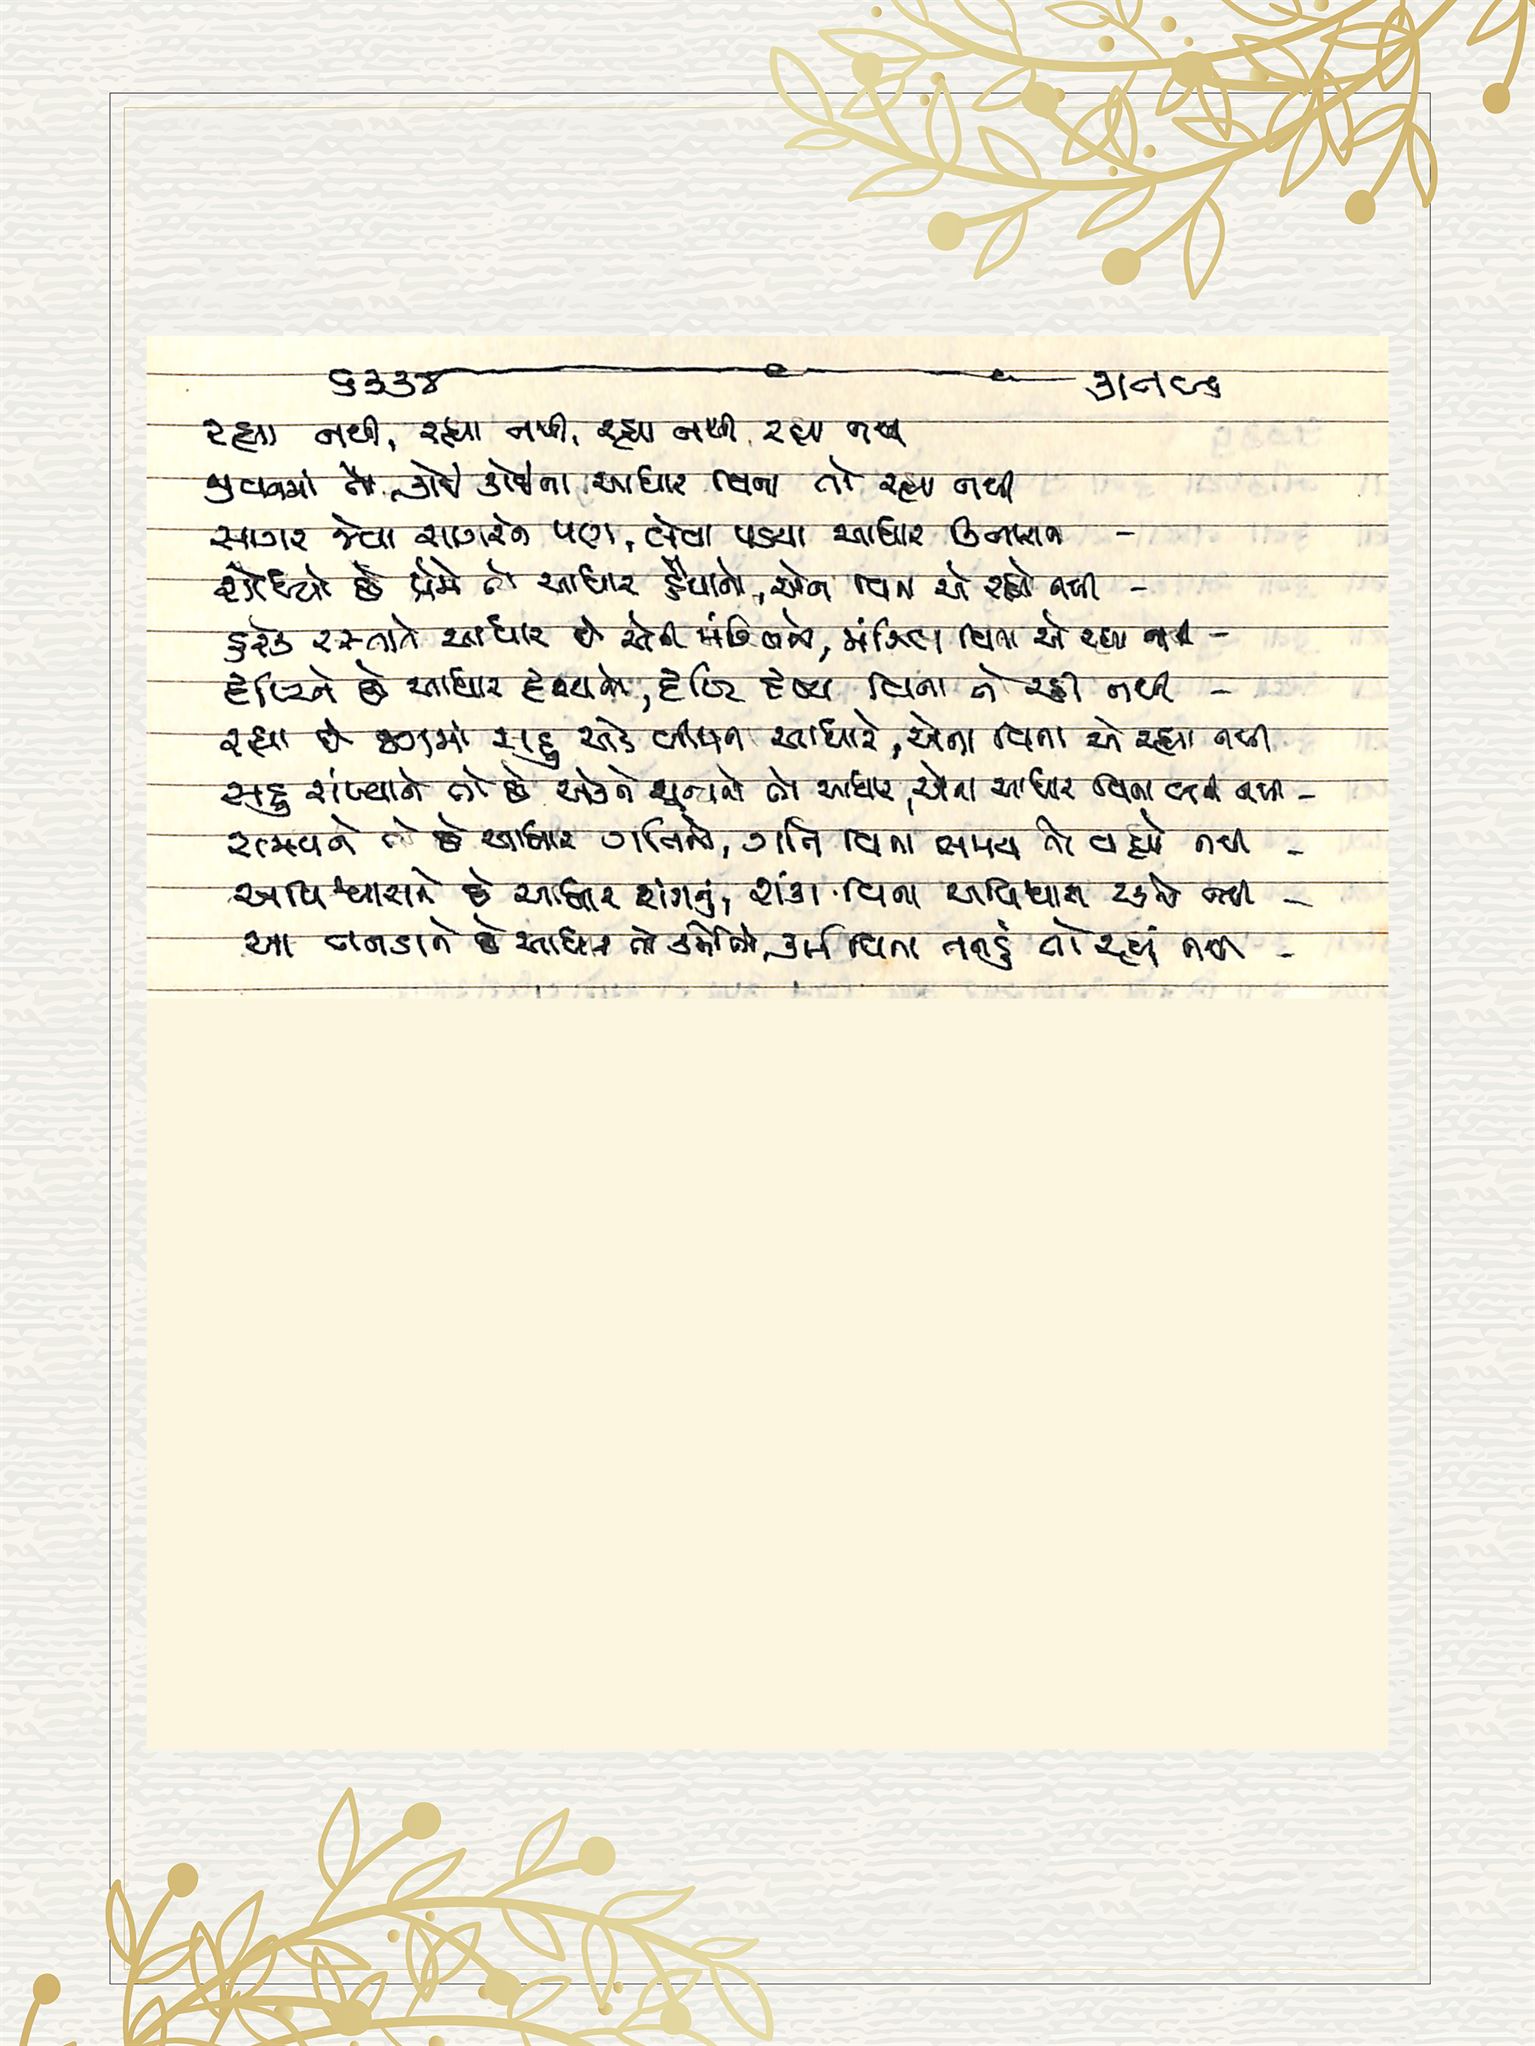 ૬૩૩૪
રહ્યા નથી, રહ્યા નથી, રહ્યા નથી, રહ્યા નથી
જીવનમાં તો, કોઈ કોઈના આધાર વિના તો રહ્યા નથી
સાગર જેવા સાગરને પણ, લેવા પડયા આધાર -
શોધ્યો છે પ્રેમે તો આધાર હૈયાનો, એના વિના એ રહ્યો નથી -
દરેક રસ્તાને આધાર છે એની મંઝિલનો, મંઝિલ વિના એ રહ્યા નથી -
દૃષ્ટિને છે આધાર દૃશ્યનો, દૃષ્ટિ દૃશ્ય વિના તો રહી નથી -
રહ્યા છે જગમાં સહુ એક બીજાના આધારે, એના વિના એ રહ્યા નથી
સહુ સંખ્યાને તો છે એકને શૂન્યનો તો આધાર, એના આધાર વિના નથી -
સમયને તો છે આધાર ગતિનો, ગતિ વિના સમય તો વહ્યો નથી -
અવિશ્વાસને છે આધાર શંકાનો, શંકા વિના અવિશ્વાસ ટકતો નથી -
આ તનડાને છે આધાર તો કર્મોનો, કર્મ વિના તનડું તો રહ્યું નથી -